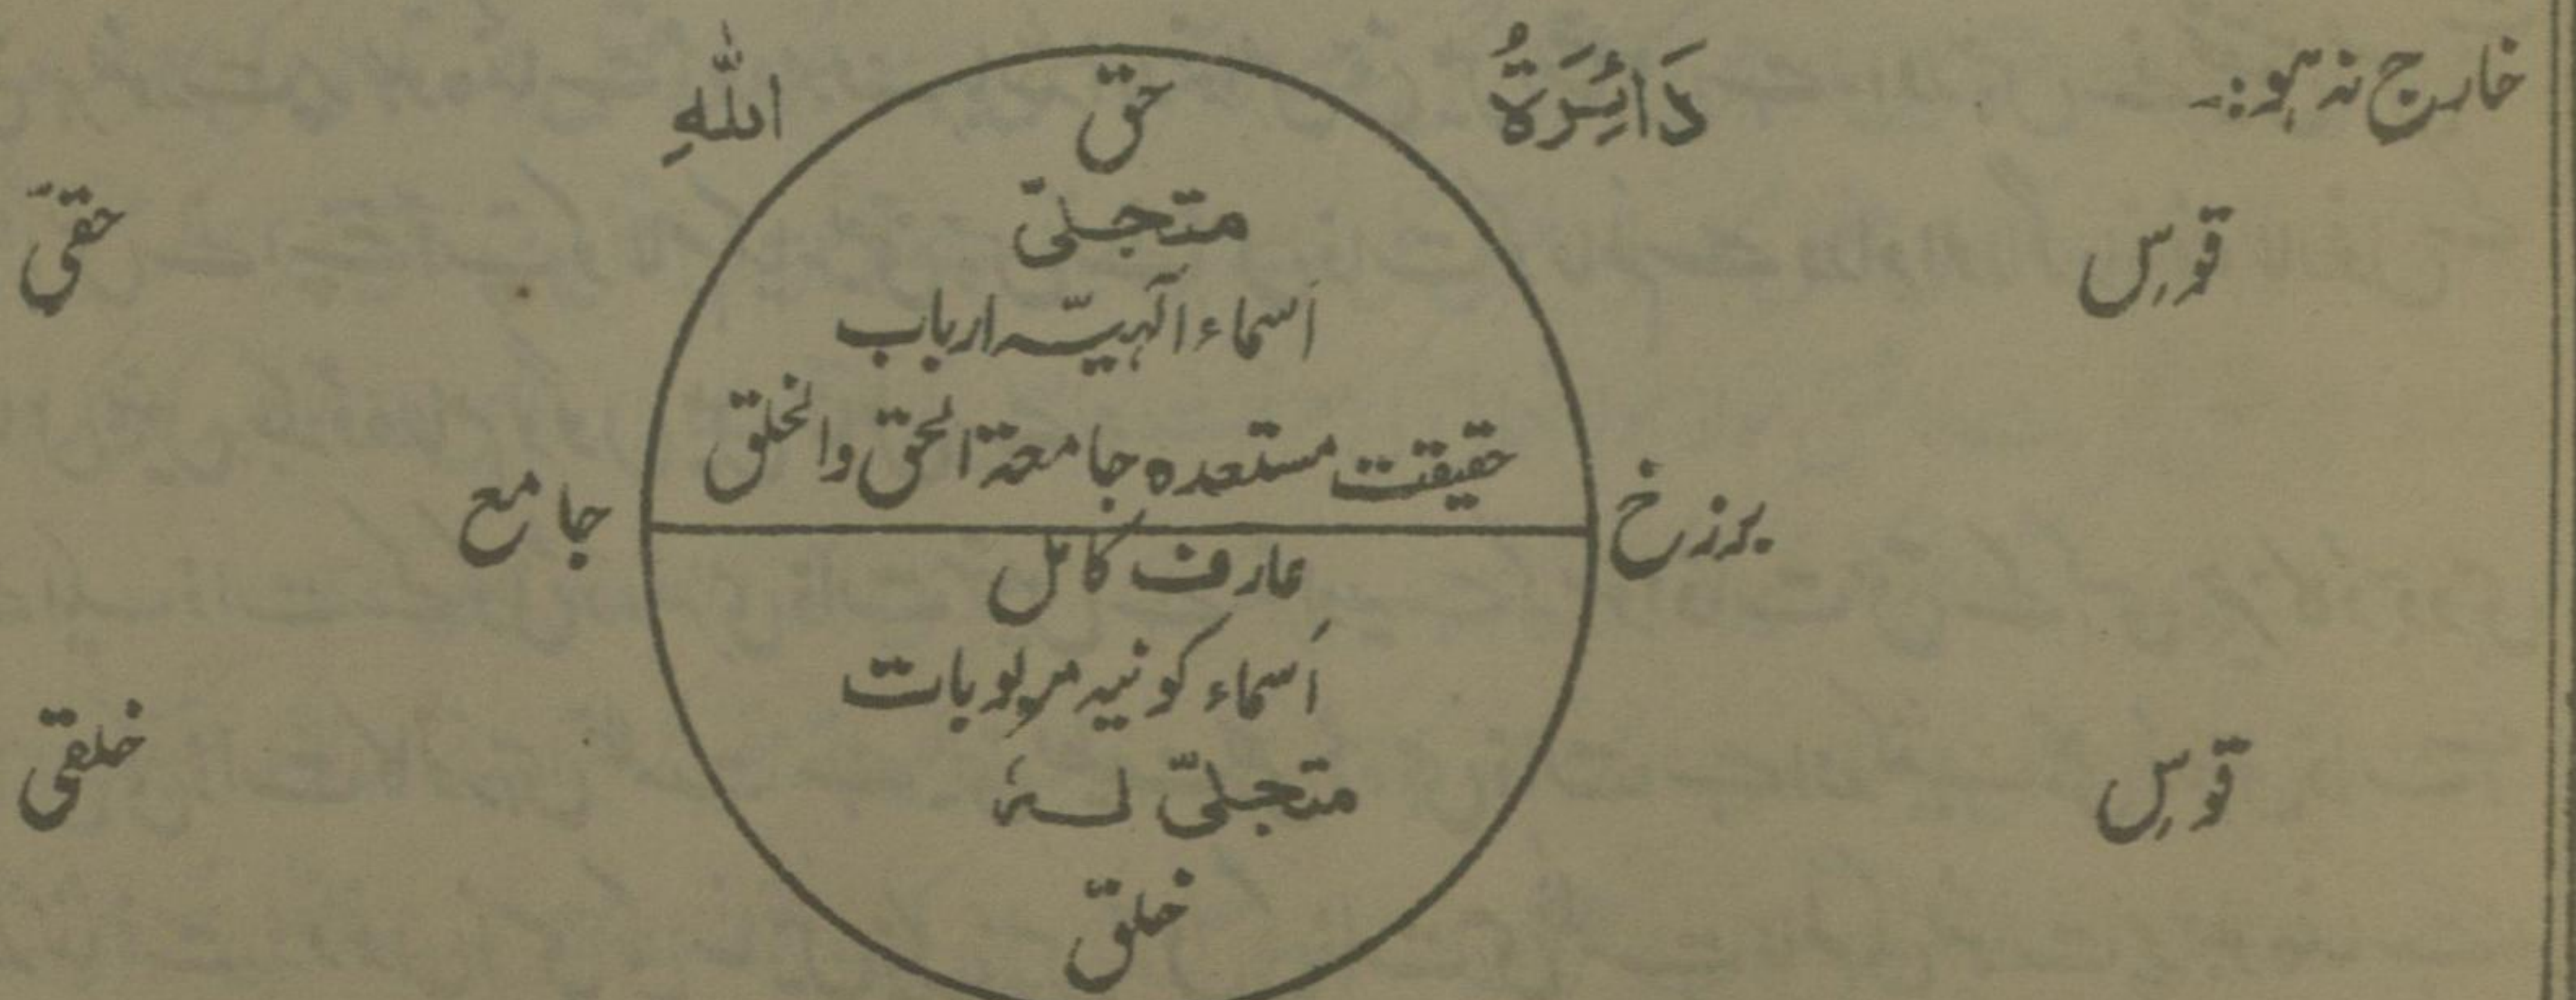 خارج نہ ہو:۔
دَائِرَةُ اللّٰهِ
حق
قوس حقیّ
متجلیّ
اَسماء الٰہیّہ ارباب
حقیقت مستعدہ جامعۃ الحق والخلق
برزخ جامع
عارف کامل
اَسماء کونیہ مربوبات
قوس خلقی
متجلیّ لہٗ
خلق